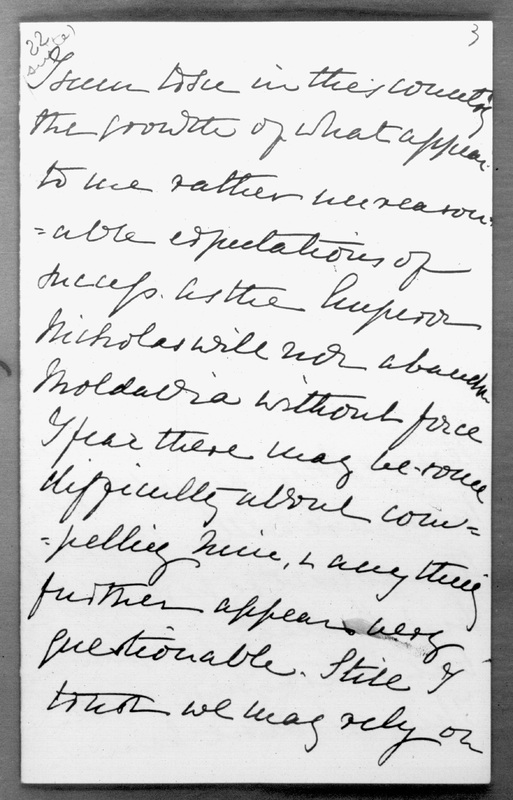 22
(suite)
3
I seem to see in this country
the growth of what appear
to me rather unreason-
=able expectations of
success. As the Emperor
Nicholas will not abandon
Moldavia without force
I fear there may be some
difficulty about com=
=pelling him, & anything
further appears very
questionable. Still I
trust we may rely on